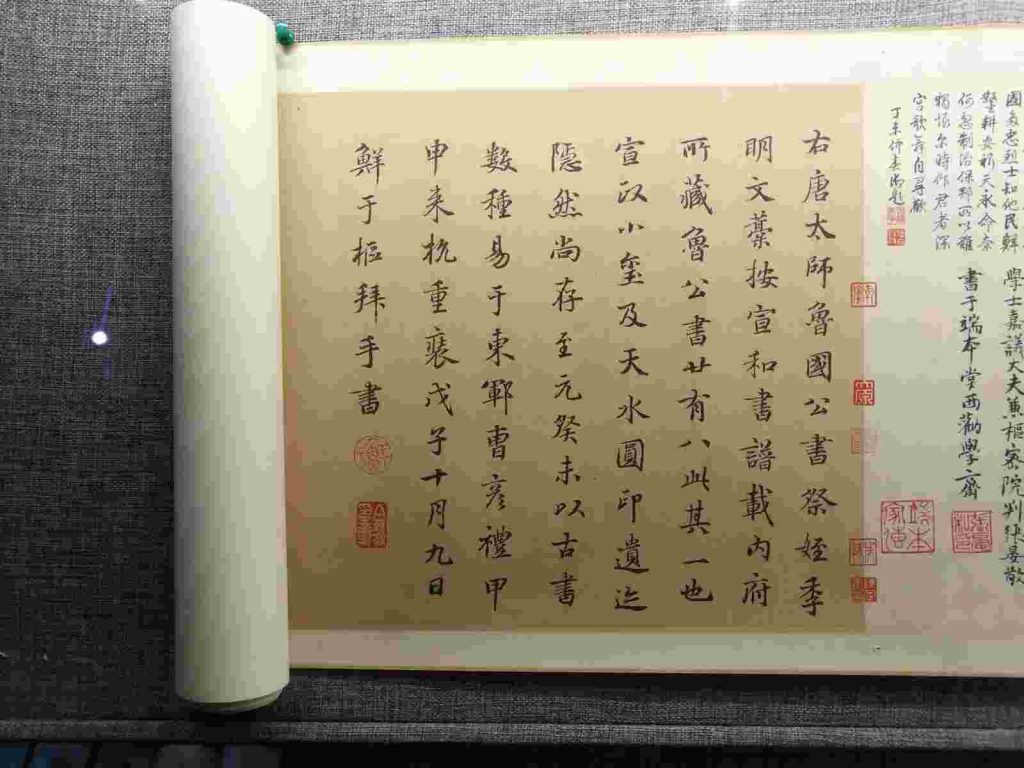 學士嘉議大夫兼樞密院判張晏敬
書于端本堂西勸學齋
獨恨尔時作君者深
丁未仲春御題
右唐太師魯國公書祭姪季
明文藁按宣和書譜載內府
所藏魯公書廿有八此其一也
宣政小璽及天水圓印遺迹
隱然尚存至元癸未以古書
數種易于東鄆曹彥禮甲
申来杭重裝戊子十月九日
鮮于樞拜手書